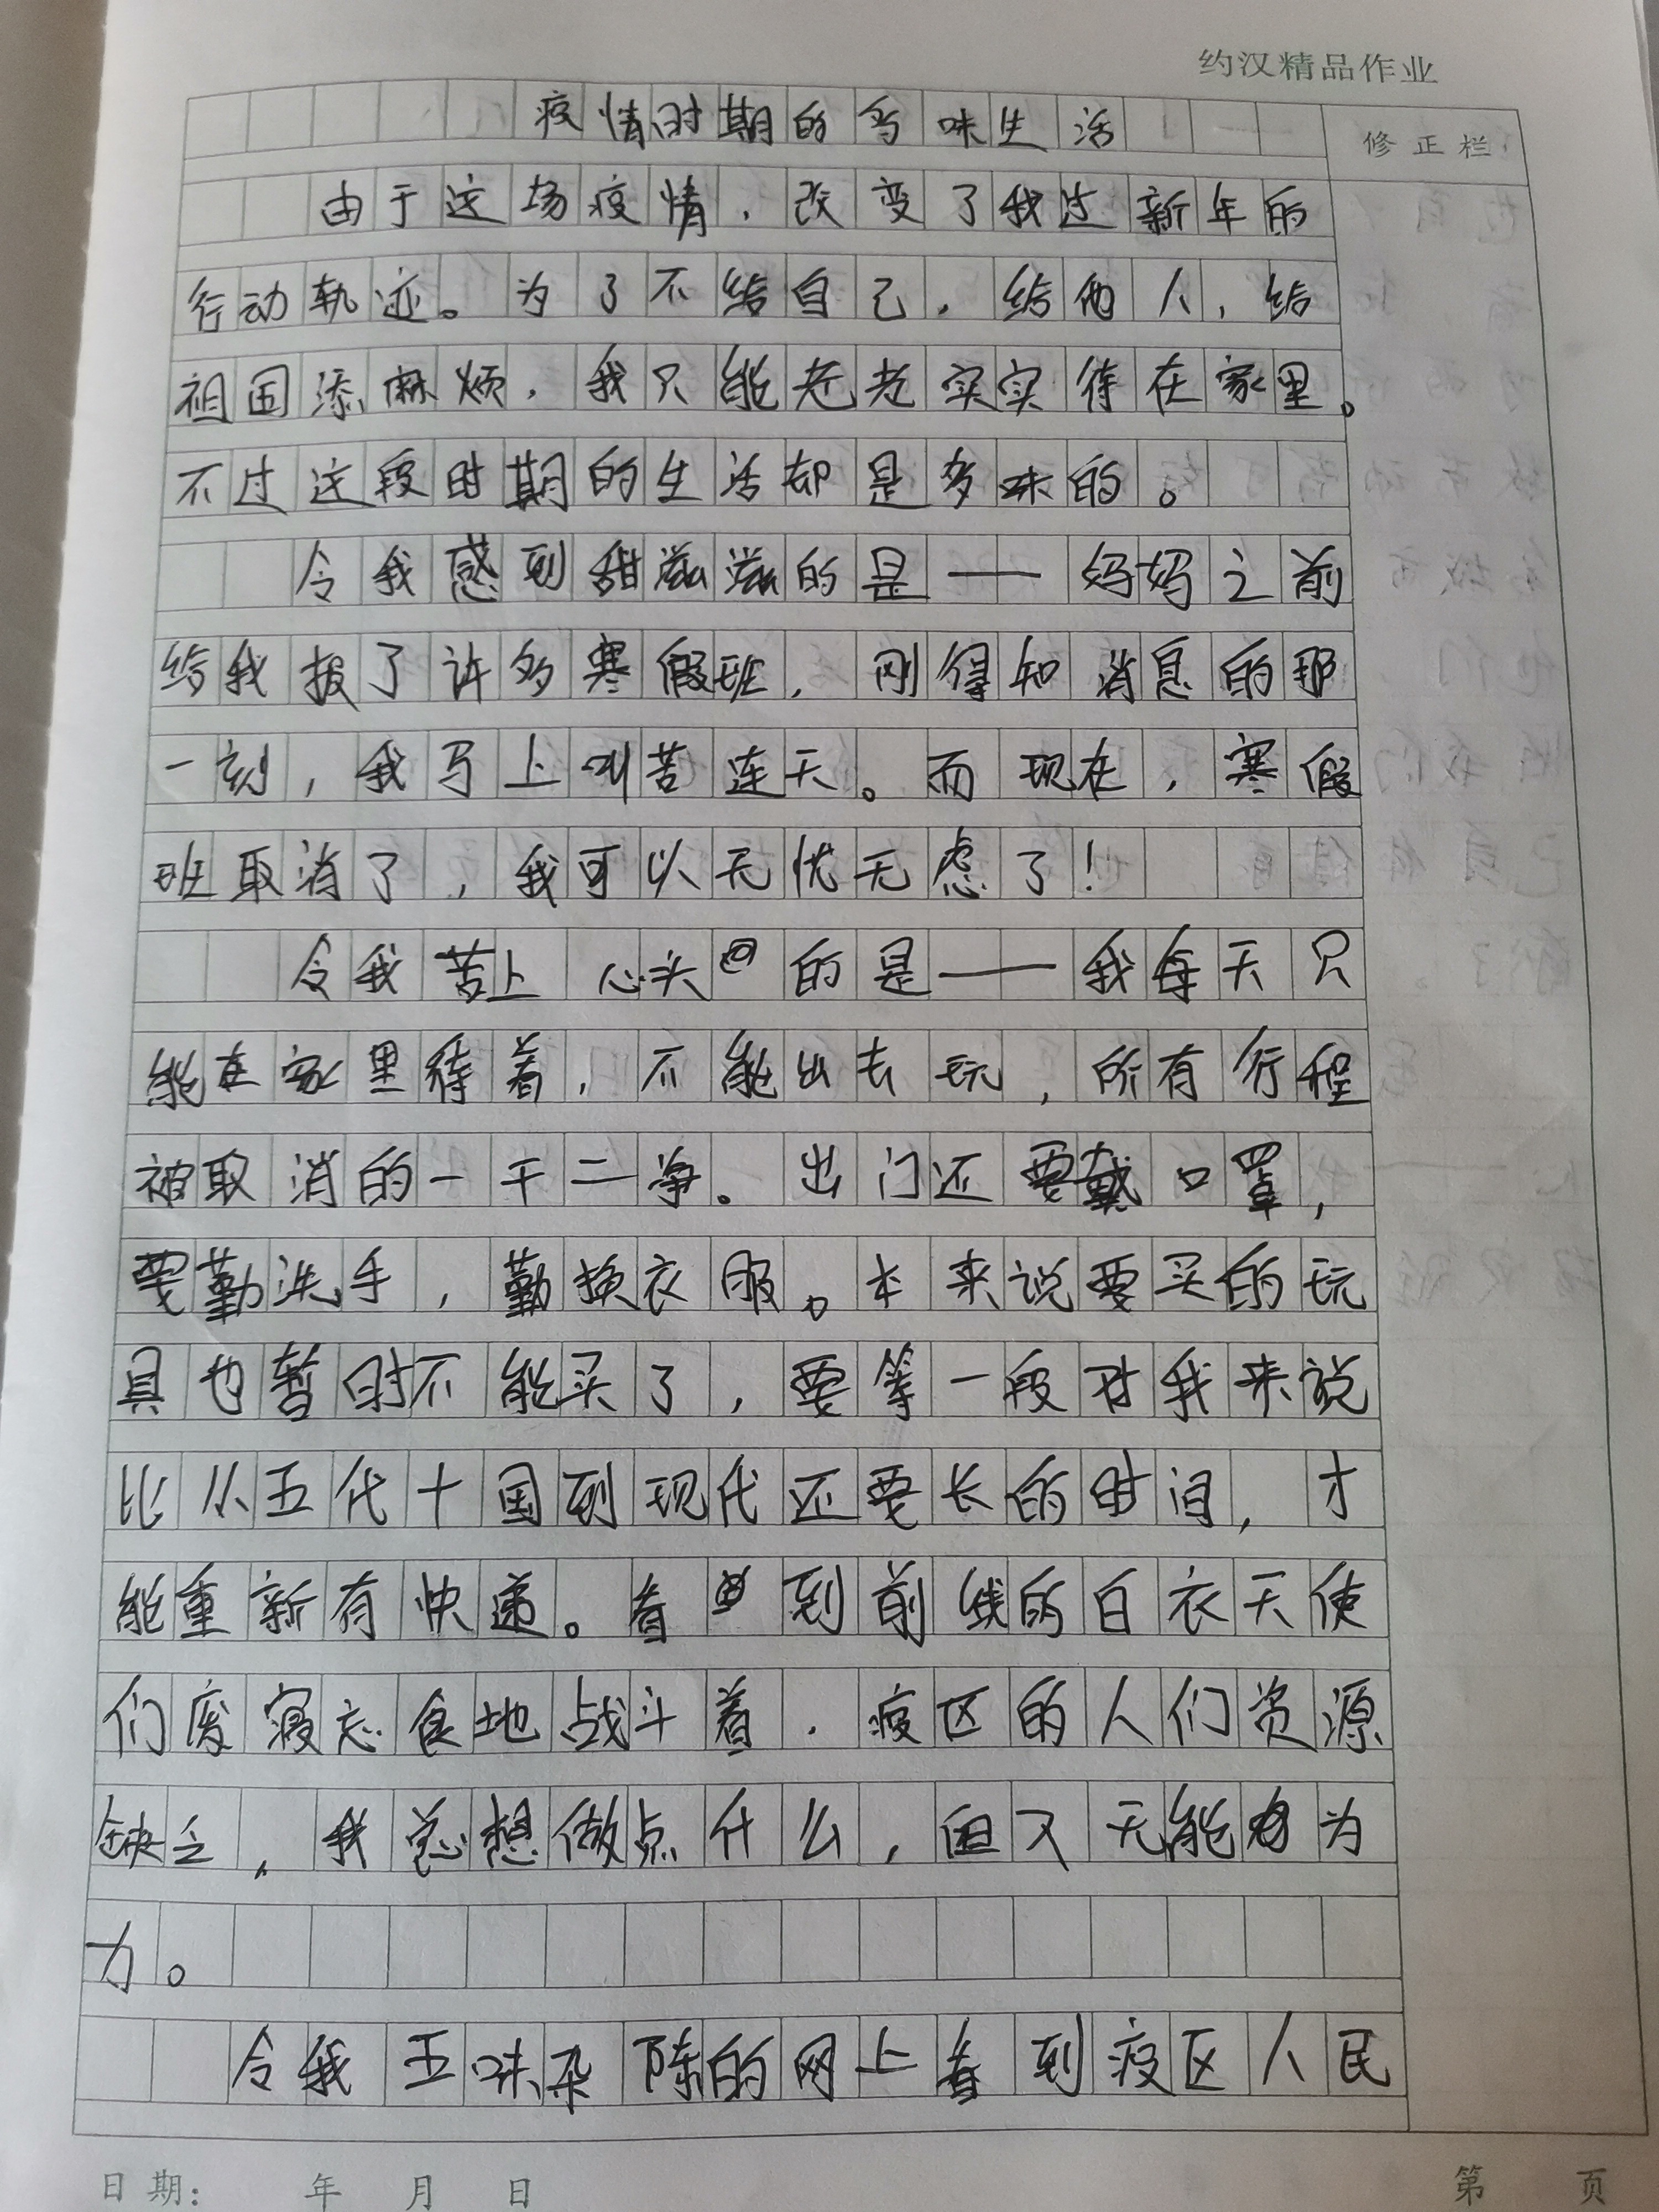 约汉精品作业
疫情时期的多味生活
修正栏
由于这场疫情，改变了我过新年的
行动轨迹。为了不给自己，给他人，给
祖国添麻烦，我只能老老实实待在家里。
不过这段时期的生活却是多味的。
令我感到甜滋滋的是——妈妈之前
给我报了许多寒假班，刚得知消息的那
一刻，我马上叫苦连天。而现在，寒假
班取消了，我可以无忧无虑了！
令我苦上心头的是——我每天只
能在家里待着，不能出去玩，所有行程
被取消的一干二净。出门还要戴口罩，
要勤洗手，勤换衣服。本来说要买的玩
具也暂时不能买了，要等一段对我来说
比从五代十国到现代还要长的时间，才
能重新有快递。看到前线的白衣天使
们废寝忘食地战斗着，疫区的人们资源
缺乏，我总想做点什么，但又无能为
力。
令我五味杂陈的网上看到疫区人民
日期： 年 月 日
第 页